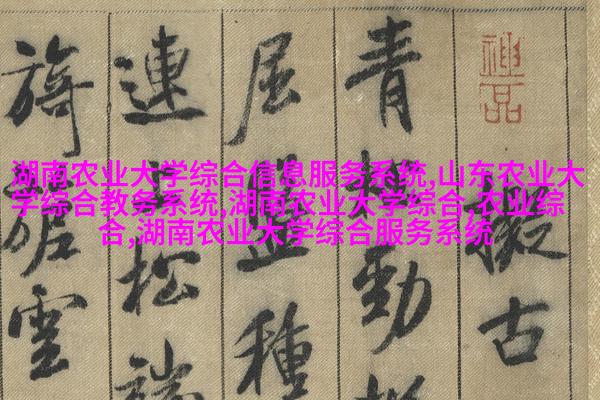 湖南农业大学综合信息服务系统,山东农业大
学综合教务系统,湖南农业大学综合,农业综
合,湖南农业大学综合服务系统
神品
擬古
青松勁挺
屈盤種
連上松端
旖旎雲